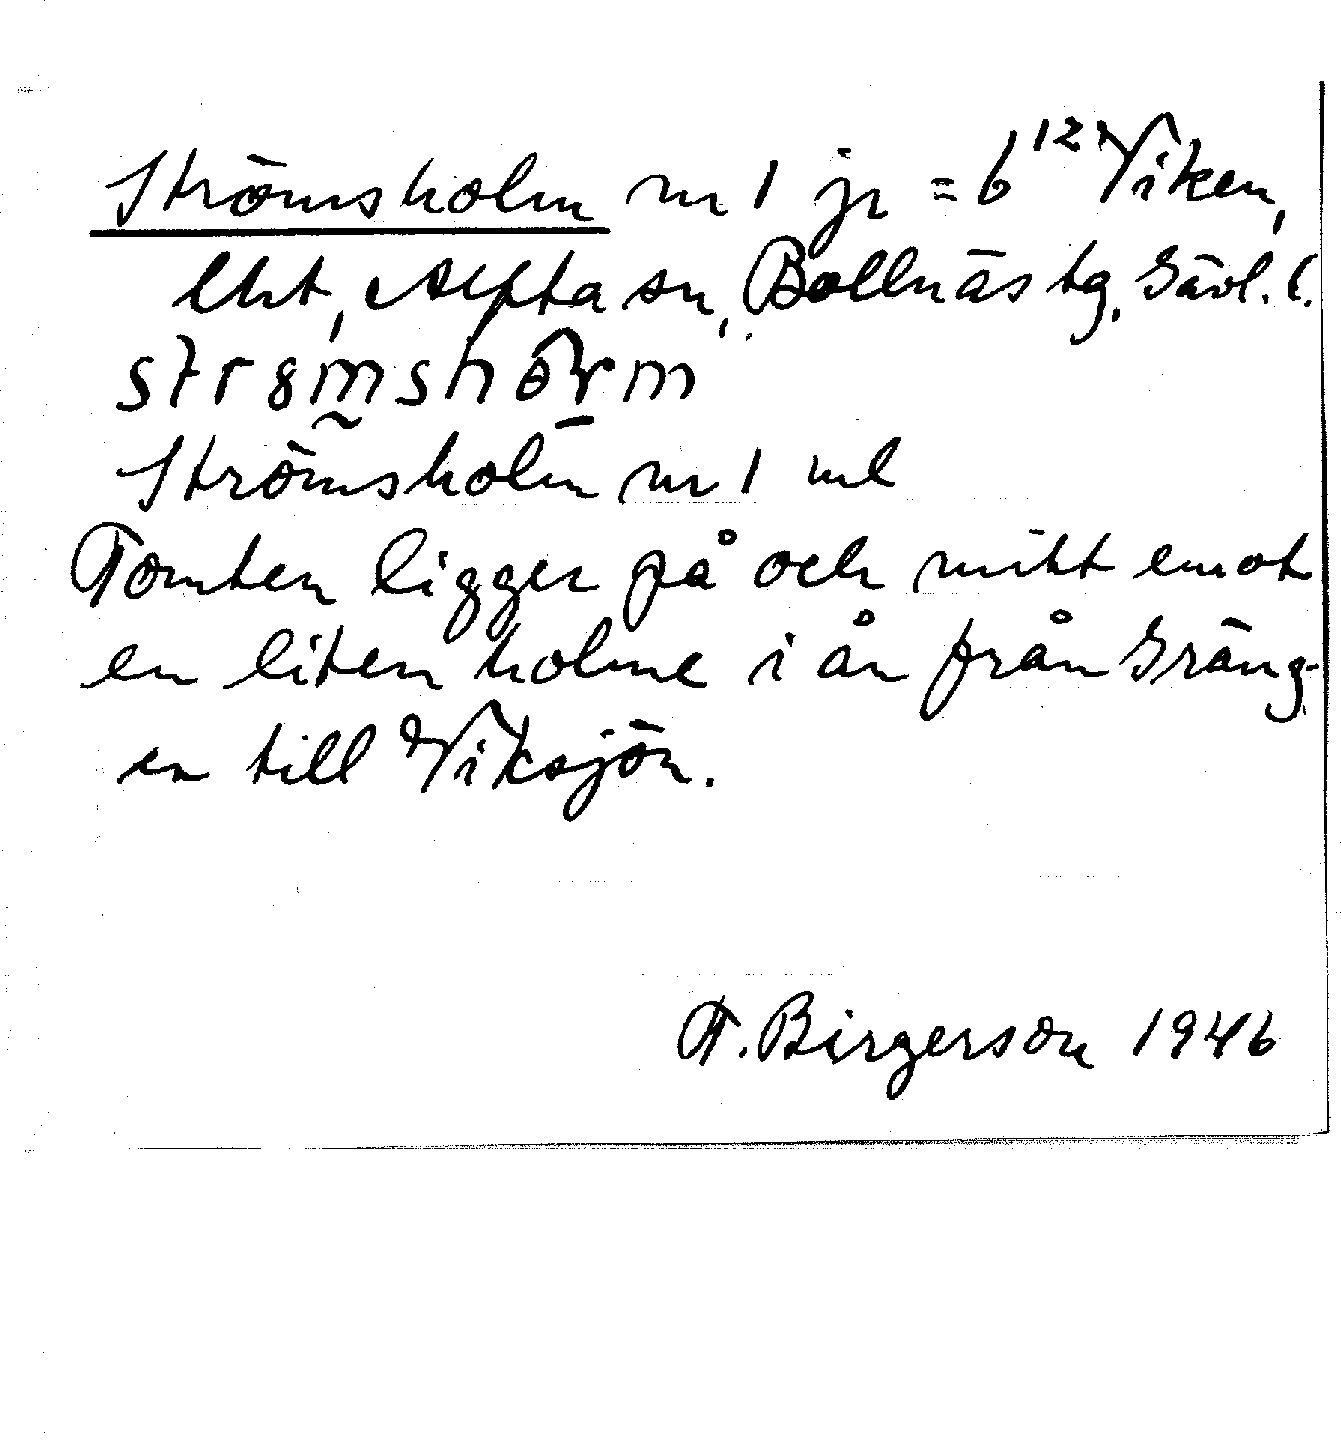 Strömsholm nr 1 jr = 6¹² Viken,
lht, Alfta sn, Bollnäs tg, Gävl. l.
Strömsholm nr 1 ml
Tomten ligger på och mitt emot
en liten holme i ån från Gräng-
en till Viksjön.
F. Birgerson 1946